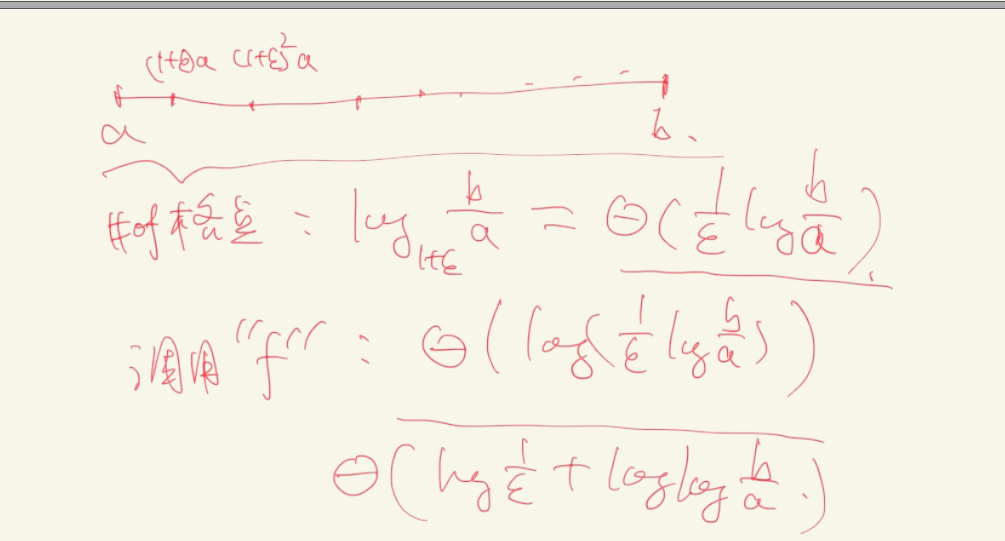 (1+ε)a (1+ε)²a
a b.
# of 检查点 : log_{1+ε} b/a = Θ(1/ε log b/a).
调用 "f" : Θ(log(1/ε log b/a))
Θ(log 1/ε + log log b/a.)